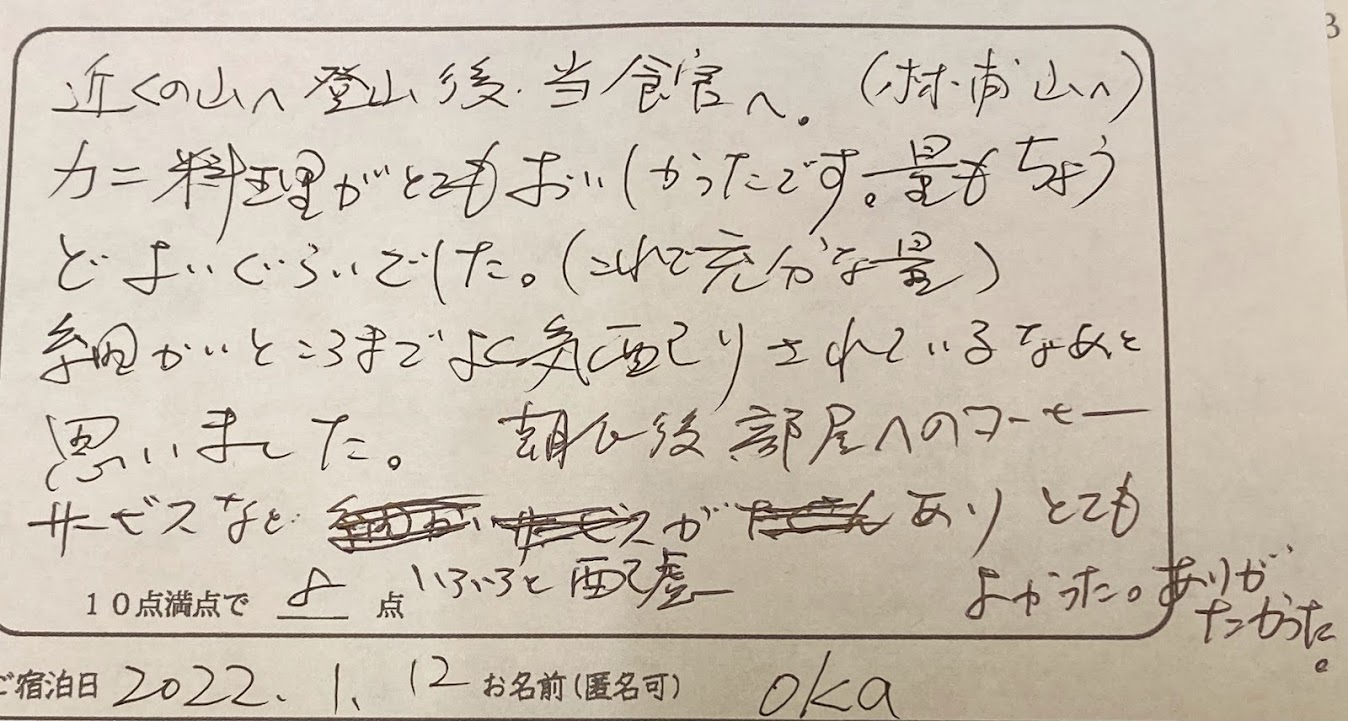 近くの山へ登山後、当館へ。(山へ)
カニ料理がとてもおいしかったです。量もちょう
どよいぐらいでした。(これで充分な量)
細かいところまでよく気配りされているなあと
思いました。 朝食後部屋へのコーヒー
サービスなど がありとても
いろいろと配慮
よかった。ありが
たかった。
10点満点で 8 点
ご宿泊日 2022.1.12 お名前(匿名可) oka